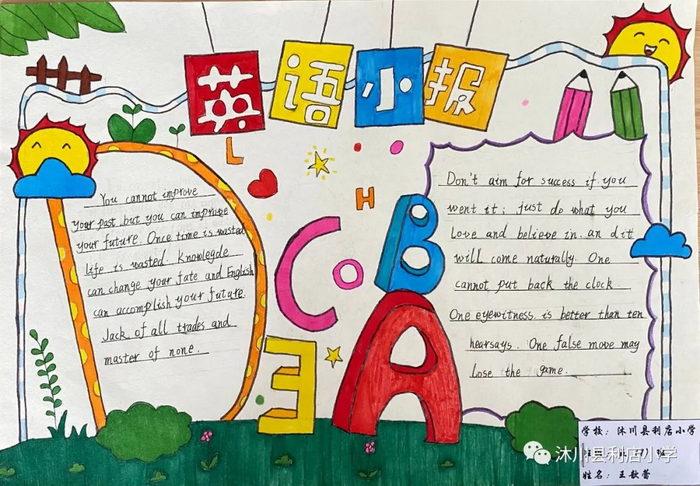 英语小报
L
H
C
O
B
E
A
You cannot improve
your past but you can improve
your future. Once time is wasted
life is wasted. Knowlegde
can change your fate and English
can accomplish your future.
Jack of all trades and
master of none.
Don't aim for success if you
went it; just do what you
Love and believe in. an dit
will come naturally. One
cannot put back the clock
One eyewitness is better than ten
hearsays. One false move may
Lose the game.
学校：沐川县利店小学
姓名：王歆蕾
沐川县利店小学